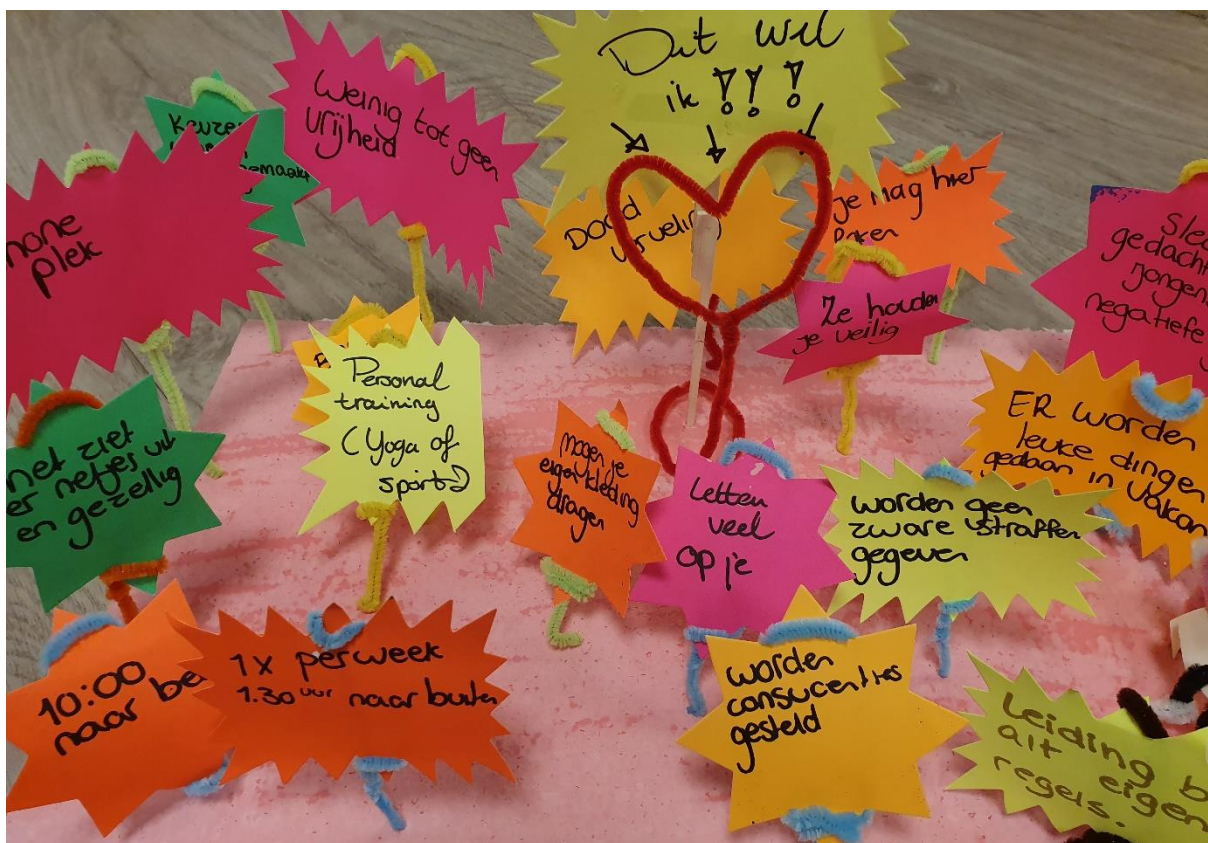 Dit wil
ik !!!
Weinig tot geen
vrijheid
Keuzes
plek
Dood
je mag hier
Ze houden
je veilig
gedacht
jongen
negatiefe
Personal
training
(Yoga of
sport)
er netjes uit
en gezellig
mogen je
eigen kleding
dragen
Letten
veel
op je
worden geen
zware straffen
gegeven
ER worden
leuke dingen
gedaan in vakan
10:00
naar be
1x per week
1.30 uur naar buiten
worden
consucenties
gesteld
Leiding b
alt eigen
regels.